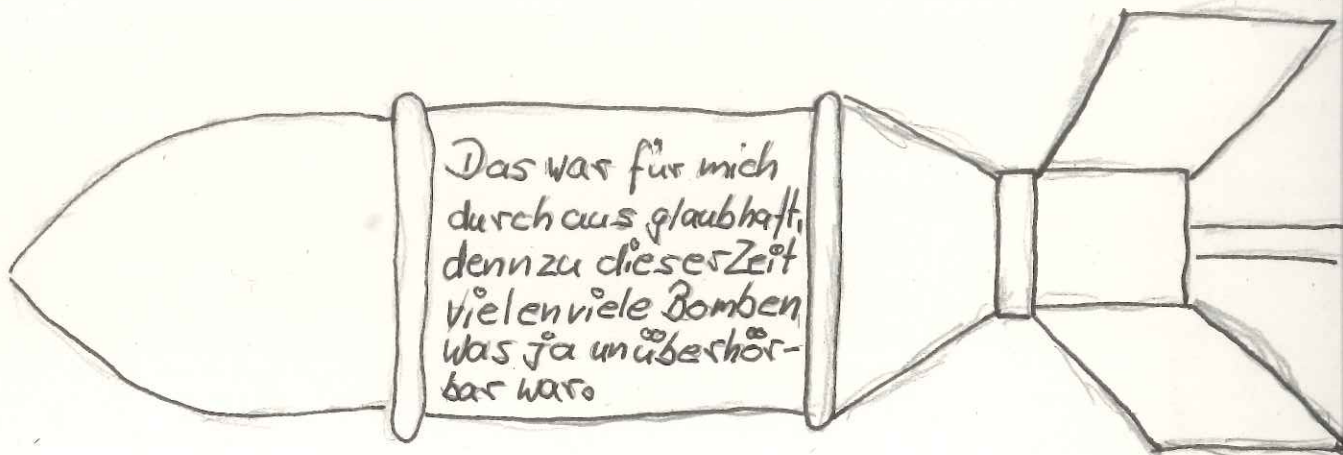 Das war für mich
durchaus glaubhaft,
denn zu dieser Zeit
vielen viele Bomben
was ja unüberhör-
bar war.